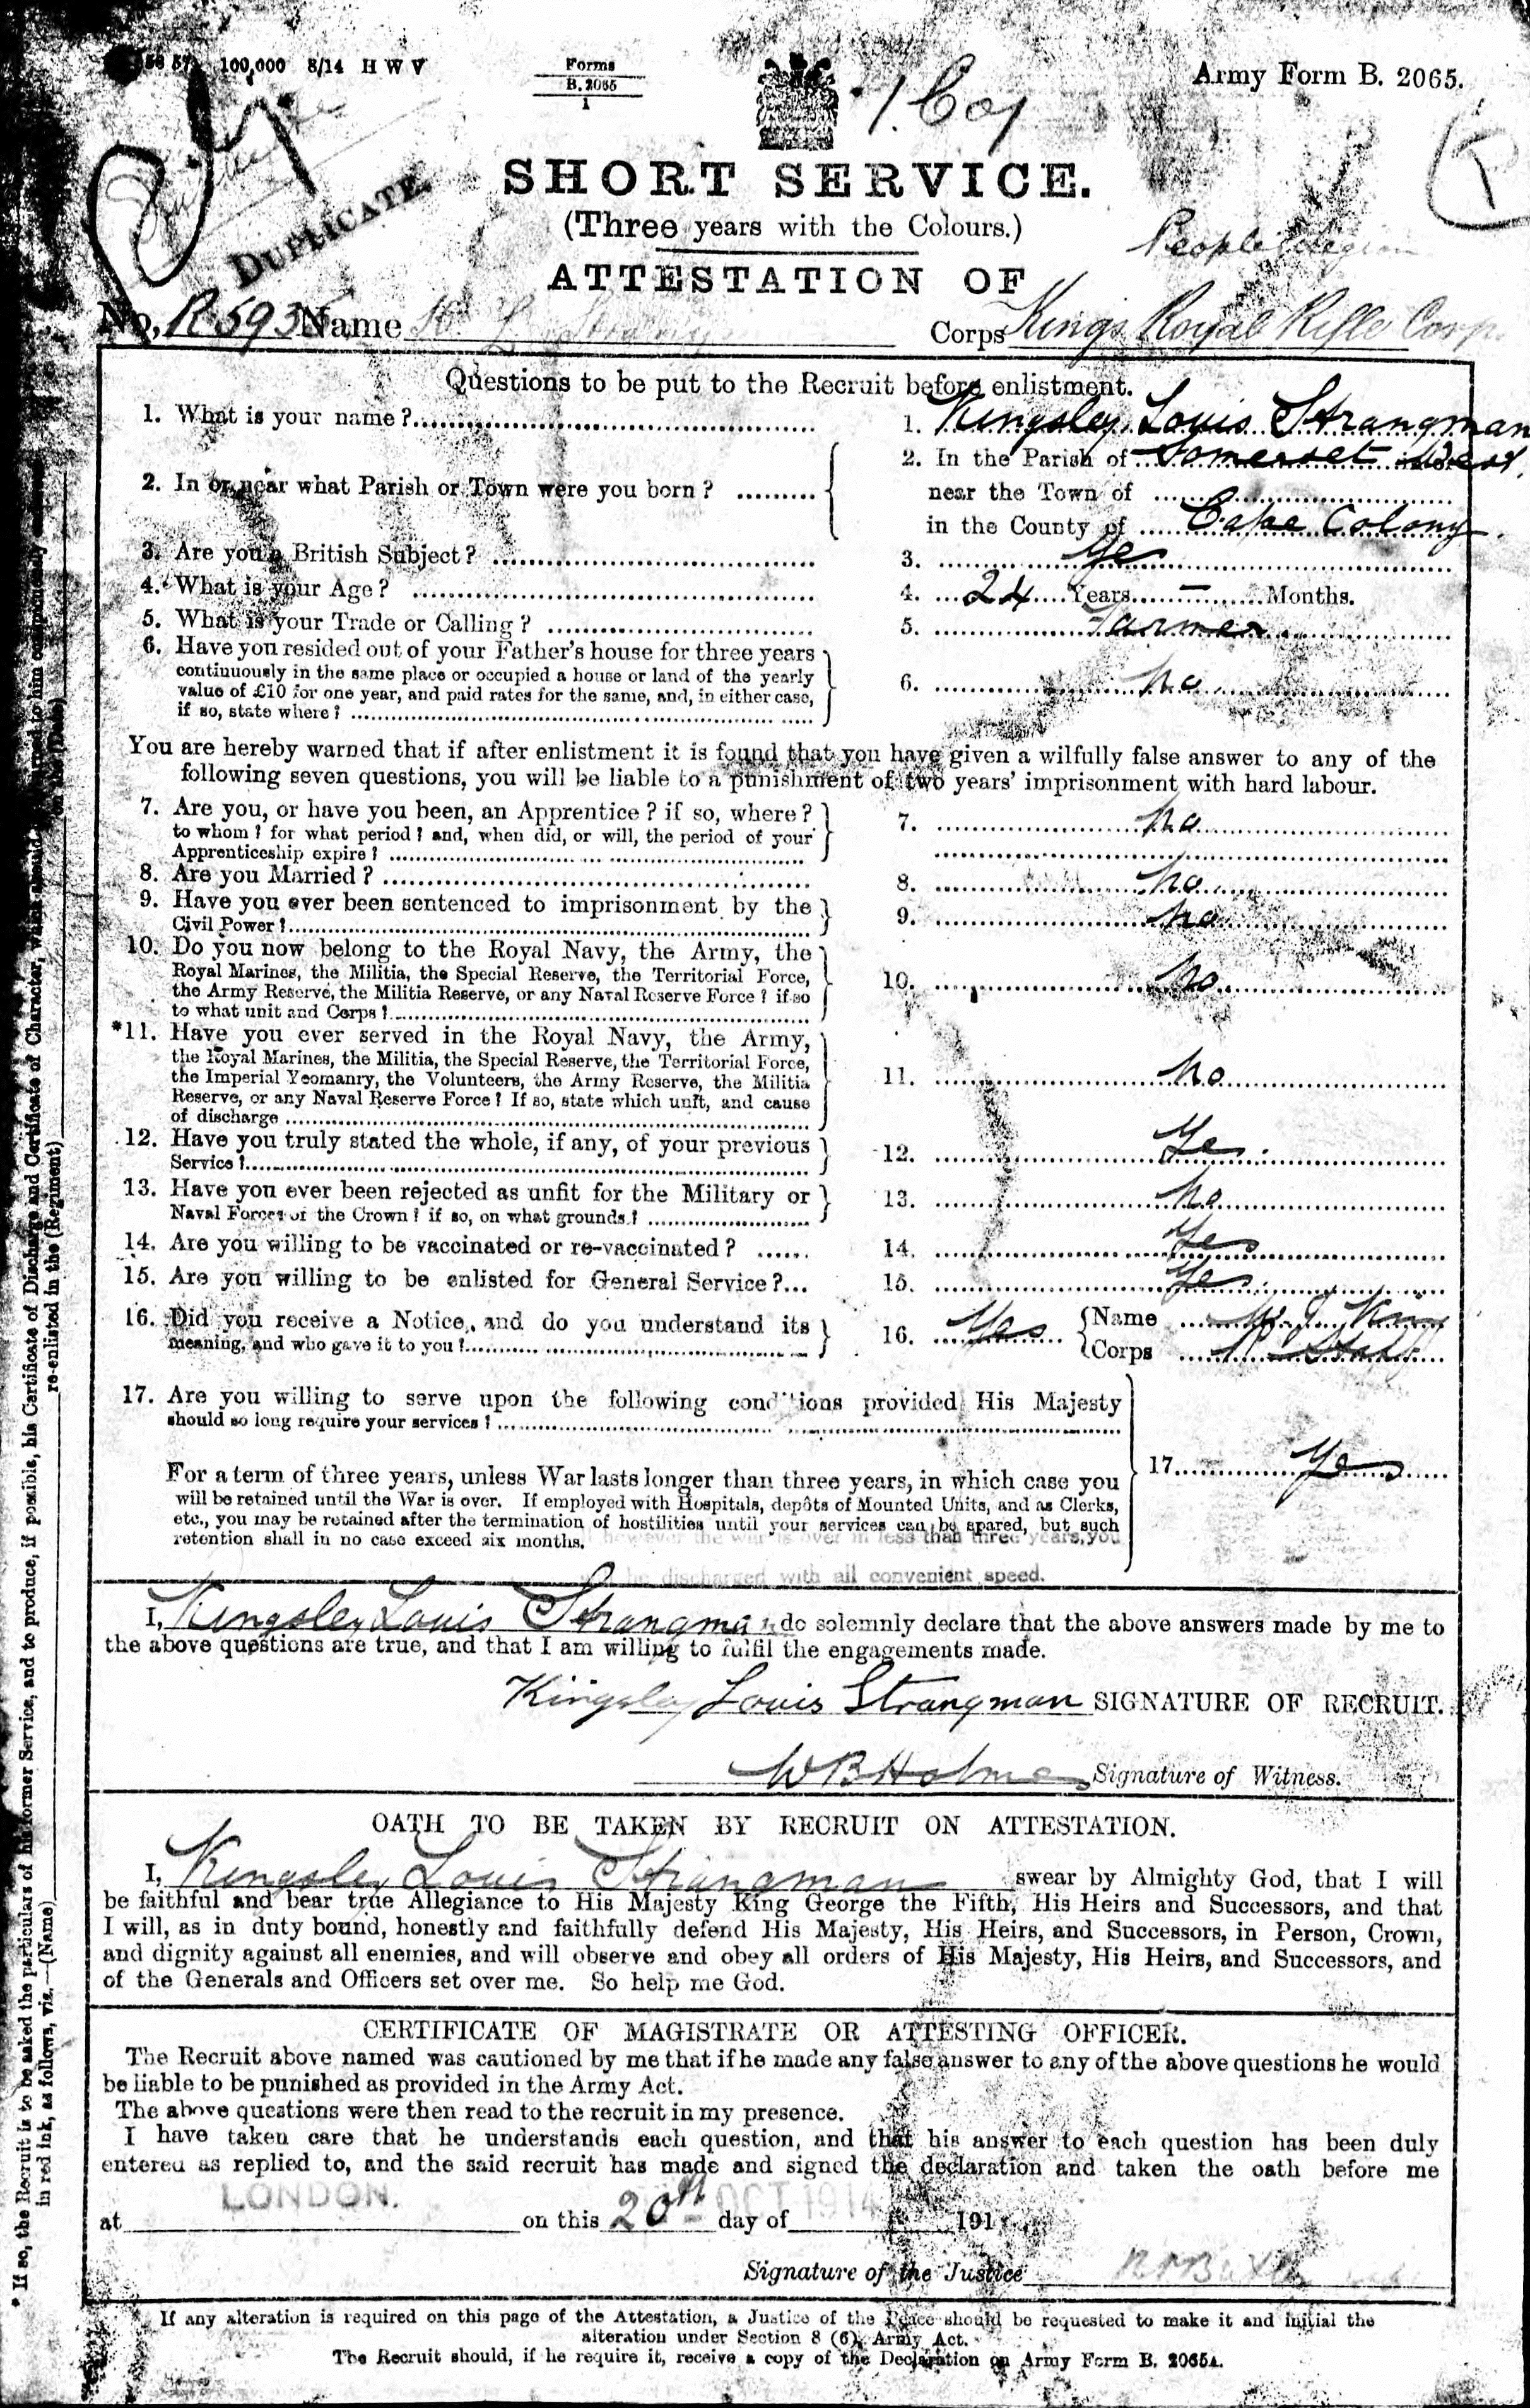 100,000 8/14 H W V
Forms
B. 2065
1
Army Form B. 2065.
DUPLICATE.
SHORT SERVICE.
(Three years with the Colours.)
ATTESTATION OF
No. R.593 Name Corps Kings Royal Rifle Corps
Questions to be put to the Recruit before enlistment.
1. What is your name? 1. Kingsley Louis Strangman
2. In or near what Parish or Town were you born? 2. In the Parish of Somerset West,
near the Town of
in the County of Cape Colony.
3. Are you a British Subject? 3. Yes
4. What is your Age? 4. 24 Years – Months.
5. What is your Trade or Calling? 5. Farmer
6. Have you resided out of your Father's house for three years
continuously in the same place or occupied a house or land of the yearly
value of £10 for one year, and paid rates for the same, and, in either case,
if so, state where? 6. No
You are hereby warned that if after enlistment it is found that you have given a wilfully false answer to any of the
following seven questions, you will be liable to a punishment of two years' imprisonment with hard labour.
7. Are you, or have you been, an Apprentice? if so, where?
to whom? for what period? and, when did, or will, the period of your
Apprenticeship expire? 7. No
8. Are you Married? 8. No
9. Have you ever been sentenced to imprisonment by the
Civil Power? 9. No
10. Do you now belong to the Royal Navy, the Army, the
Royal Marines, the Militia, the Special Reserve, the Territorial Force,
the Army Reserve, the Militia Reserve, or any Naval Reserve Force? if so
to what unit and Corps? 10. No
*11. Have you ever served in the Royal Navy, the Army,
the Royal Marines, the Militia, the Special Reserve, the Territorial Force,
the Imperial Yeomanry, the Volunteers, the Army Reserve, the Militia
Reserve, or any Naval Reserve Force? If so, state which unit, and cause
of discharge 11. No
12. Have you truly stated the whole, if any, of your previous
Service? 12. Yes
13. Have you ever been rejected as unfit for the Military or
Naval Forces of the Crown? if so, on what grounds? 13. No
14. Are you willing to be vaccinated or re-vaccinated? 14. Yes
15. Are you willing to be enlisted for General Service? 15. Yes
16. Did you receive a Notice, and do you understand its
meaning, and who gave it to you? 16. Yes Name
Corps
17. Are you willing to serve upon the following conditions provided His Majesty
should so long require your services?
For a term of three years, unless War lasts longer than three years, in which case you 17. Yes
will be retained until the War is over. If employed with Hospitals, depôts of Mounted Units, and as Clerks,
etc., you may be retained after the termination of hostilities until your services can be spared, but such
retention shall in no case exceed six months. however the war is over in less than three years, you
be discharged with all convenient speed.
I, Kingsley Louis Strangman do solemnly declare that the above answers made by me to
the above questions are true, and that I am willing to fulfil the engagements made.
Kingsley Louis Strangman SIGNATURE OF RECRUIT.
W B Holmes Signature of Witness.
OATH TO BE TAKEN BY RECRUIT ON ATTESTATION.
I, Kingsley Louis Strangman swear by Almighty God, that I will
be faithful and bear true Allegiance to His Majesty King George the Fifth, His Heirs and Successors, and that
I will, as in duty bound, honestly and faithfully defend His Majesty, His Heirs, and Successors, in Person, Crown,
and dignity against all enemies, and will observe and obey all orders of His Majesty, His Heirs, and Successors, and
of the Generals and Officers set over me. So help me God.
CERTIFICATE OF MAGISTRATE OR ATTESTING OFFICER.
The Recruit above named was cautioned by me that if he made any false answer to any of the above questions he would
be liable to be punished as provided in the Army Act.
The above questions were then read to the recruit in my presence.
I have taken care that he understands each question, and that his answer to each question has been duly
entered as replied to, and the said recruit has made and signed the declaration and taken the oath before me
at LONDON. on this 20th day of OCT 1914 191
Signature of the Justice
If any alteration is required on this page of the Attestation, a Justice of the Peace should be requested to make it and initial the
alteration under Section 8 (6), Army Act.
The Recruit should, if he require it, receive a copy of the Declaration on Army Form B. 2065A.
* If so, the Recruit is to be asked the particulars of his former Service, and to produce, if possible, his Certificate of Discharge and Certificate of Character, which should
in red ink, as follows, viz.—(Name) re-enlisted in the (Regiment) on the (Date)